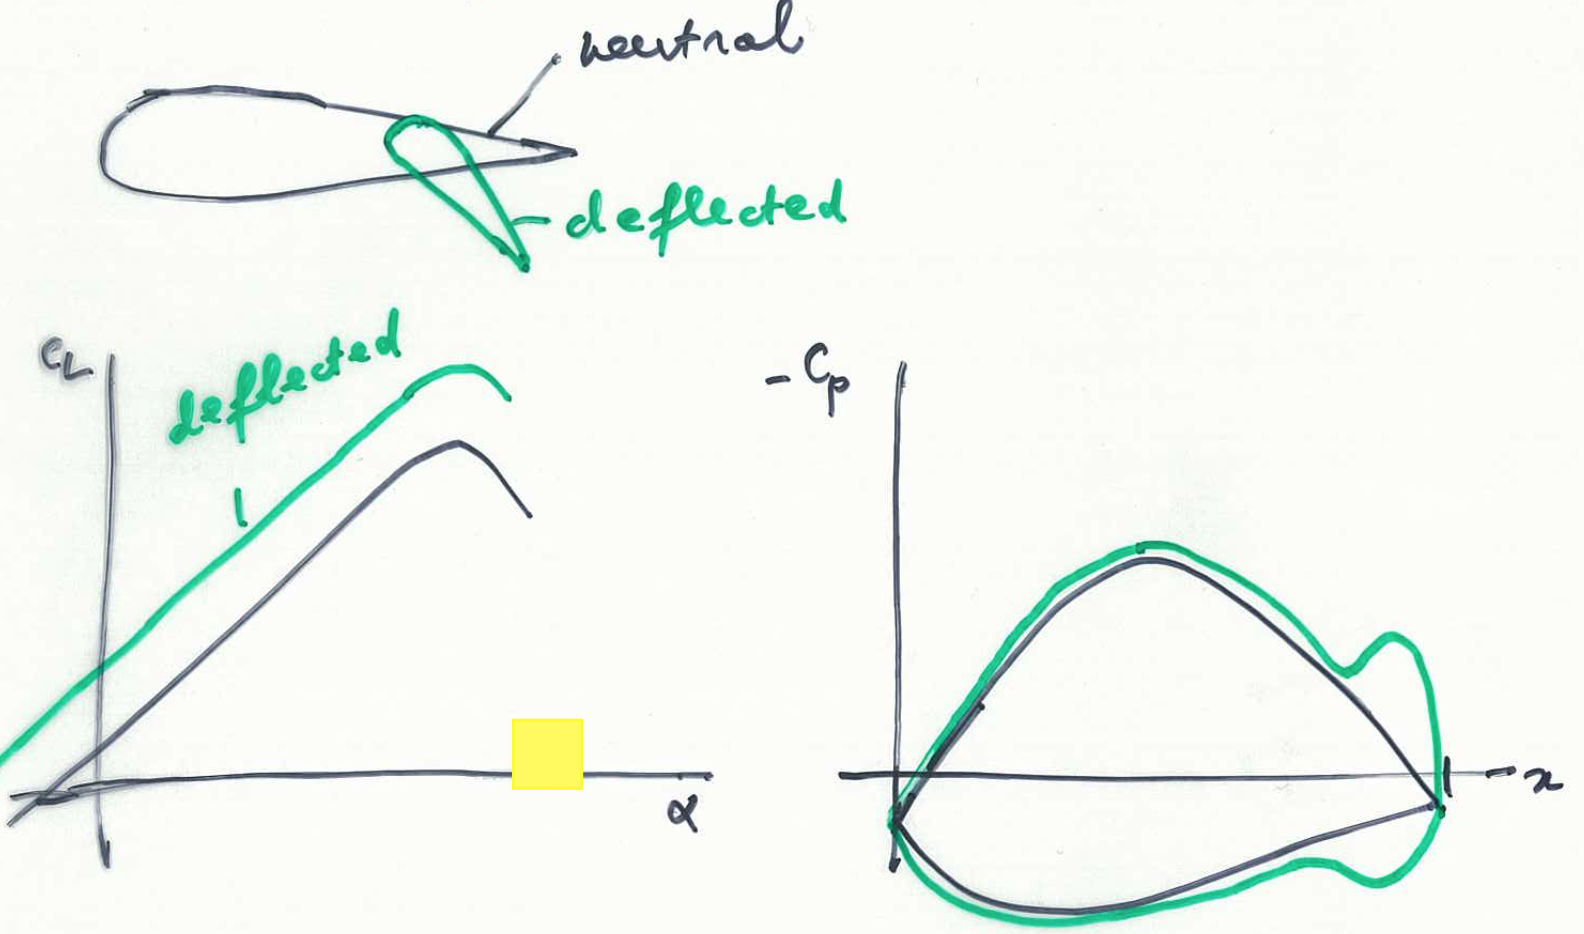 neutral
deflected
CL
deflected
α
- Cp
1
x